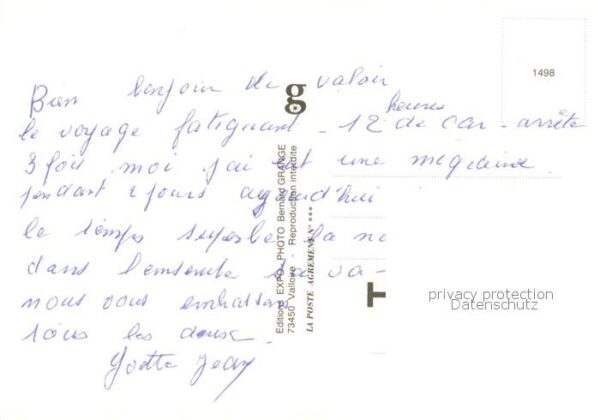 Bien bonjour de Valoir
le voyage fatiguant - 12 heures de car - arrête
3 fois moi j'ai eut une migraine
pendant 2 jours aujourd'hui
le temps superbe la
dans l'ensemble sa va -
nous vous embrassons
tous les deux.
Jean
g
Editions EXPO - PHOTO Bernard GRANGE
73450 Valloire - Reproduction interdite
LA POSTE AGREMENT N° ***
1498
privacy protection
Datenschutz